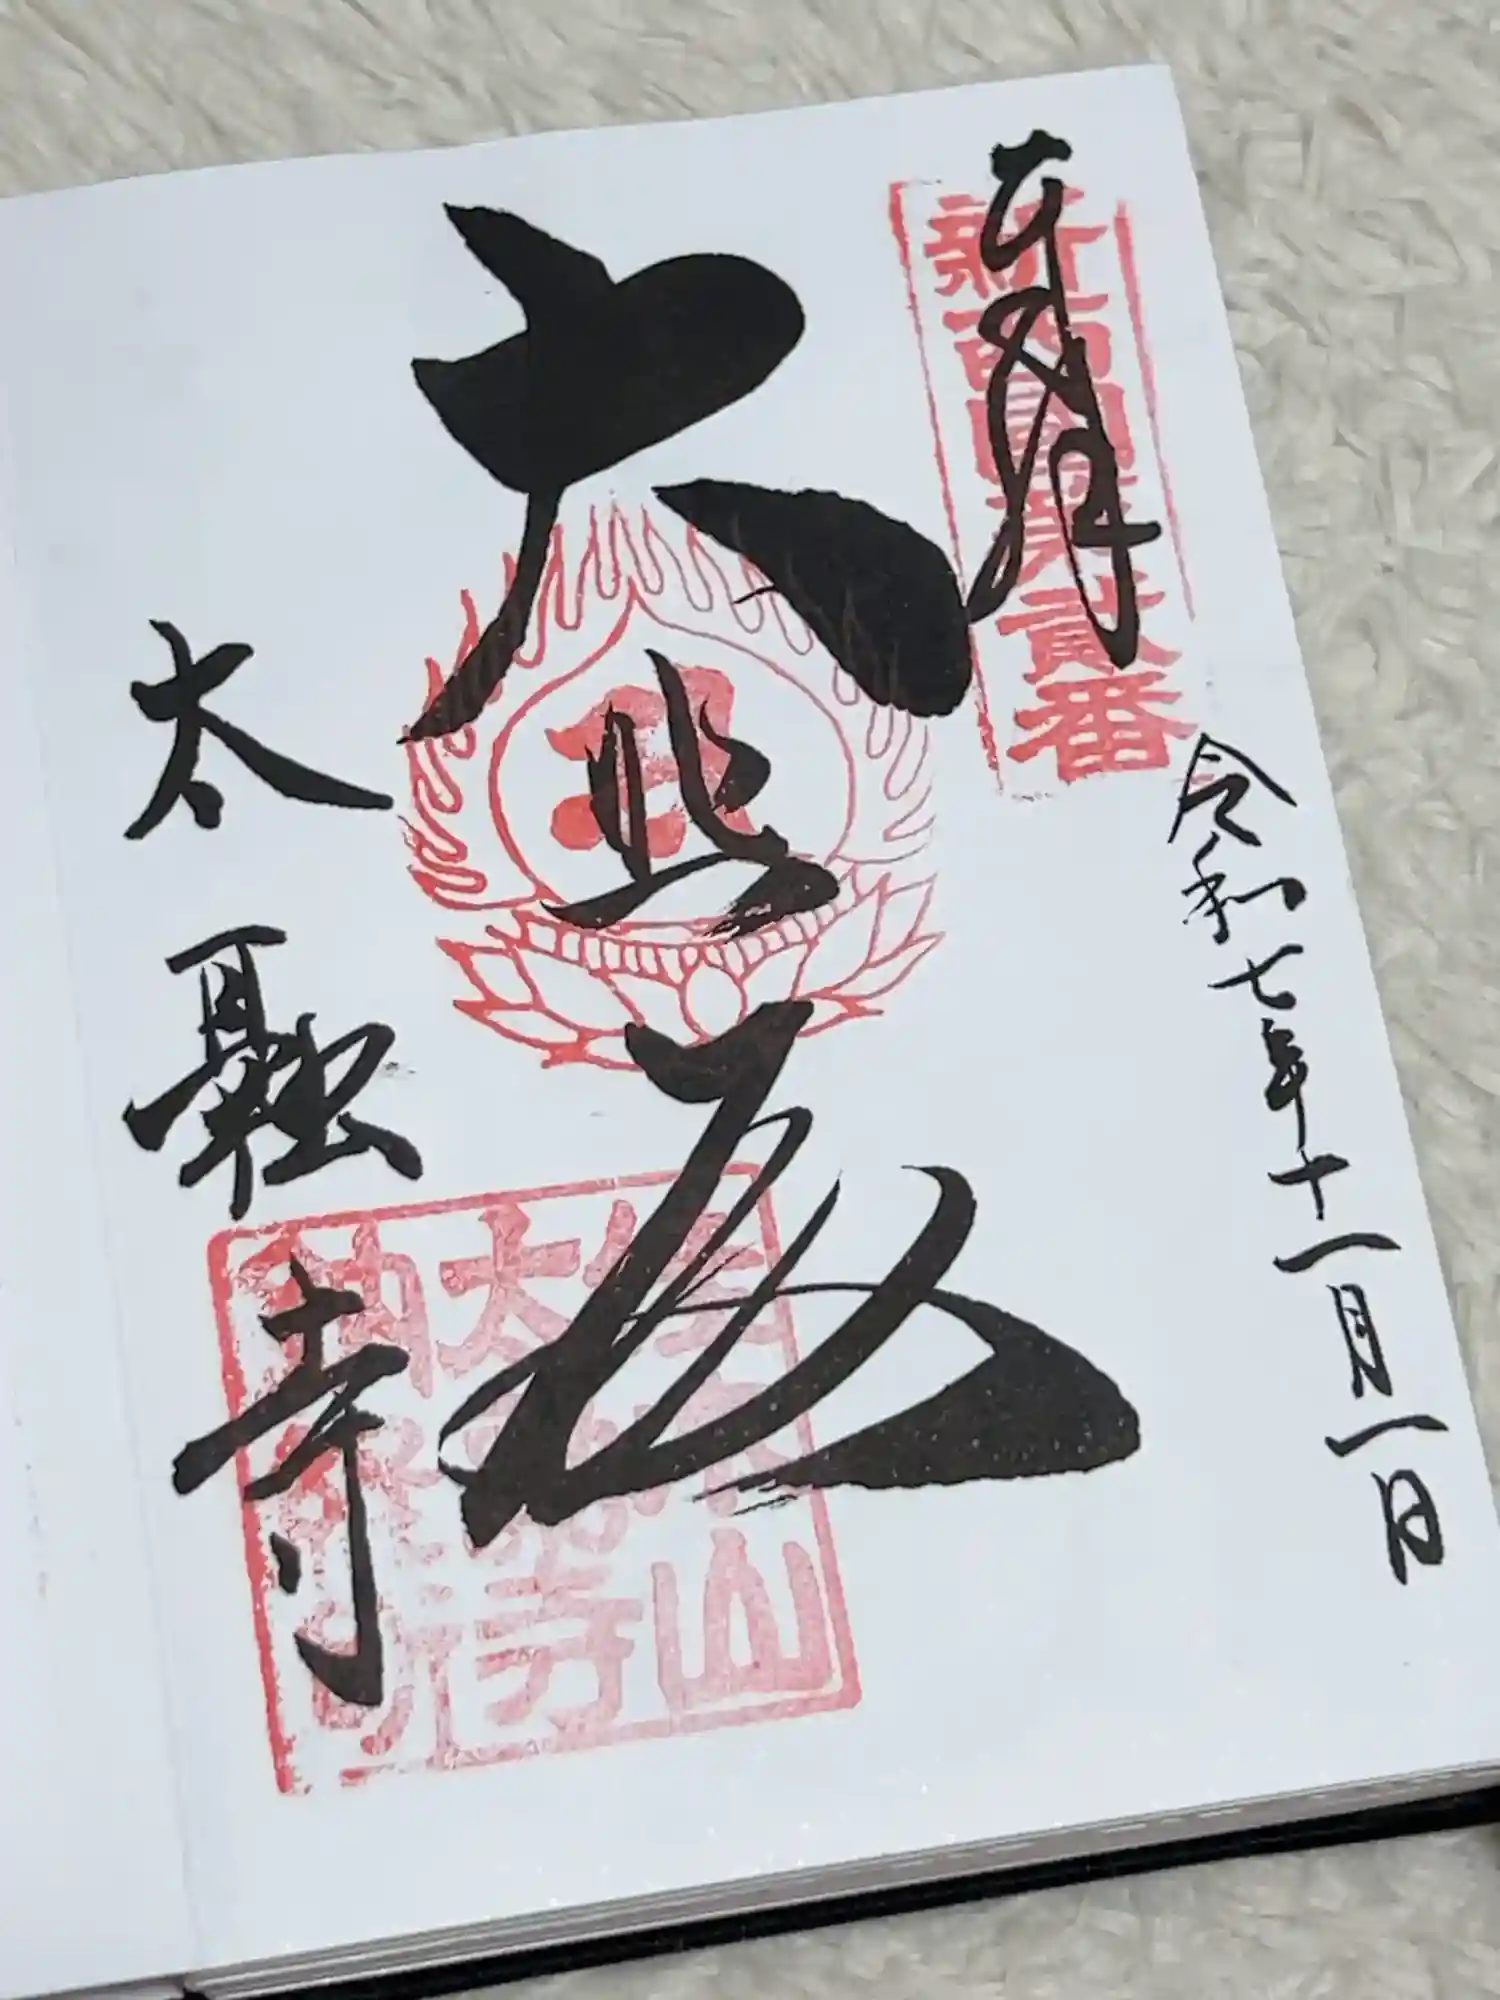 奉拝
新西國第貳番
令和七年十一月一日
大悲殿
太融寺
佳木山
太融寺
納経印